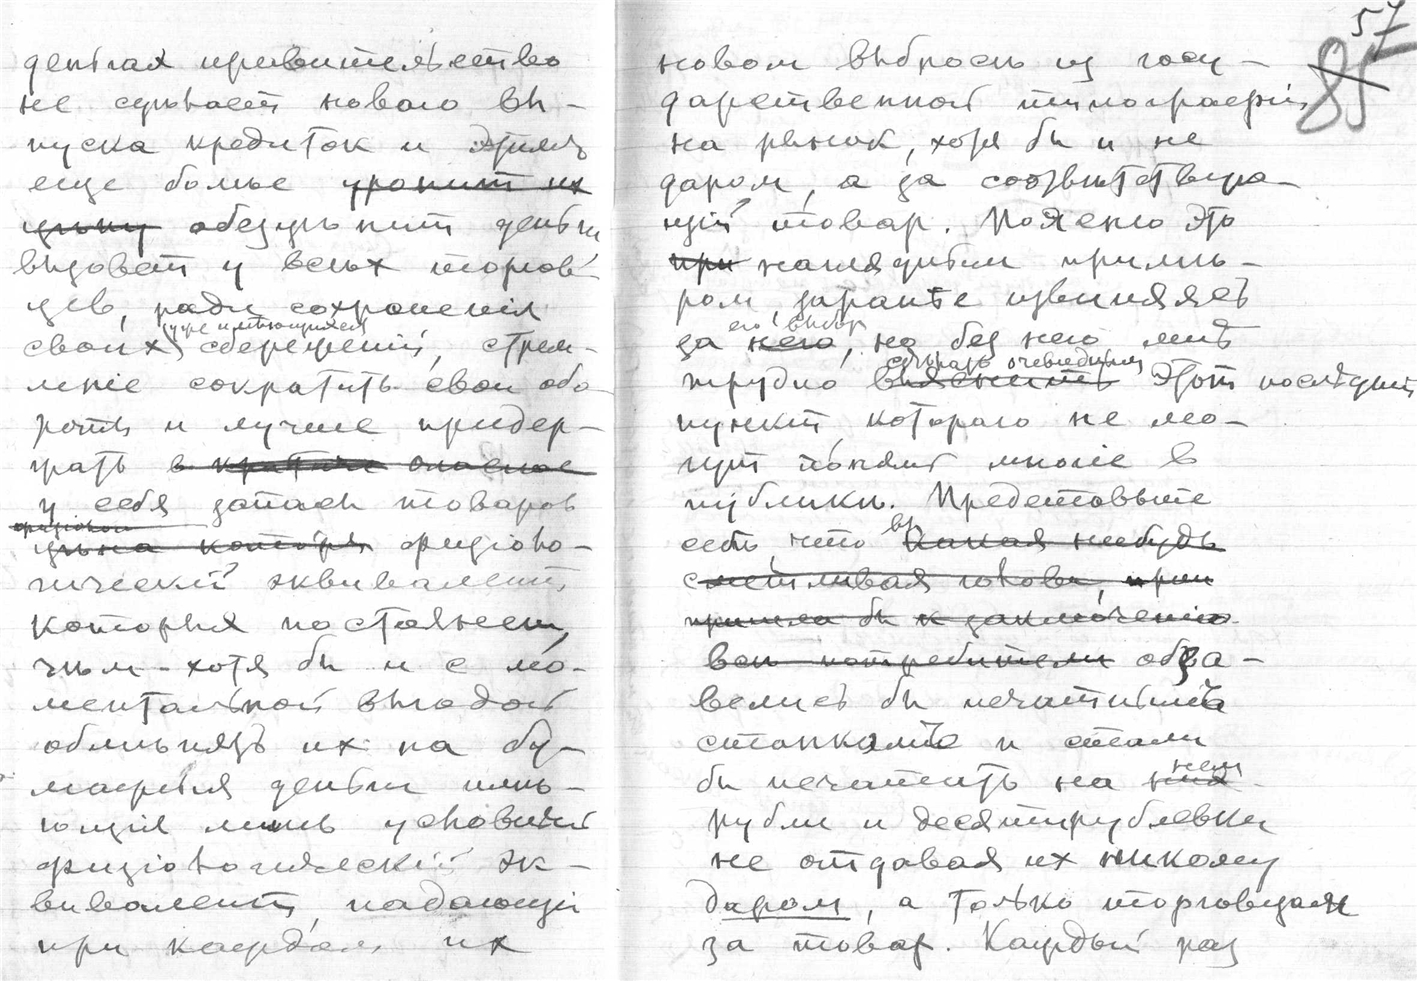 деньгах правительство
не сделает нового вы-
пуска кредиток и этим
еще более уронит их
цѣну обезцѣнит деньги
вызовет у всѣх торгов-
цев, ради сохраненія
уже имѣющихся
своих сбережений, стрем-
леніе сократить свои обо-
роты и лучше придер-
жать в
у себя запасы товаров
цѣна которых физіоло-
гическій эквивалент
которых постоянен,
чѣм - хотя бы и с мо-
ментальной выгодой
обмѣнять их на бу-
мажныя деньги имѣ-
ющія лишь условный
физіологическій эк-
вивалент, падающій
при каждом их
57
85
новом выбросѣ из госу-
дарственной типографіи
на рынок, хотя бы и не
даром, а за соотвѣтствую-
щій товар. Поясню это
при наглядным примѣ-
ром, заранѣе извиняясь
его выбор
за него, но без него мнѣ
сдѣлать очевидным
трудно выяснить этот послѣдній
пункт, котораго не мо-
гут понять многіе в
публики. Представьте
себѣ, что вы какая нибудь
сметливая голова, при
пришла бы к заключенію
всѣ потребители обза-
велись бы печатным
станком и стали
нем
бы печатать на них
рубли и десятирублевки
не отдавая их никому
даром, а только торговцам
за товар. Каждый раз